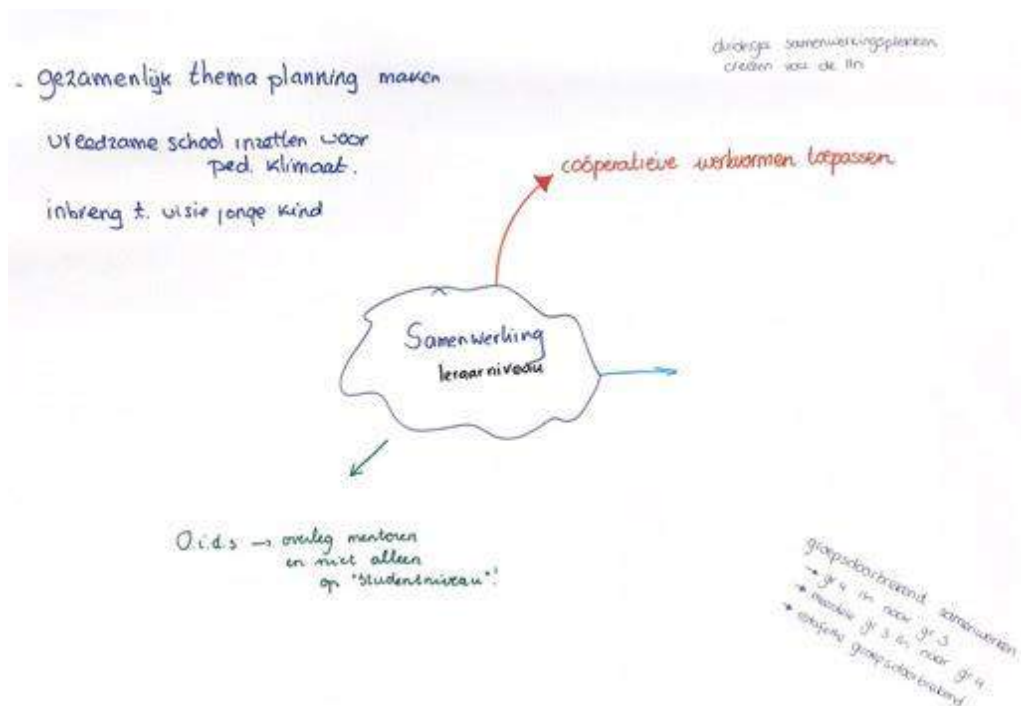 - gezamenlijk thema planning maken
vreedzame school inzetten voor
ped. klimaat.
inbreng t. visie jonge kind
samenwerkingsplekken
creëren voor de lln
coöperatieve werkvormen toepassen
Samenwerking
leraarniveau
O.i.d.s → overleg mentoren
en niet alleen
op "studentniveau"!
groepsdoorbrekend samenwerken
→ gr 4 lln naar gr 3
→ gr 3 lln naar gr 4
→ groepsdoorbrekend